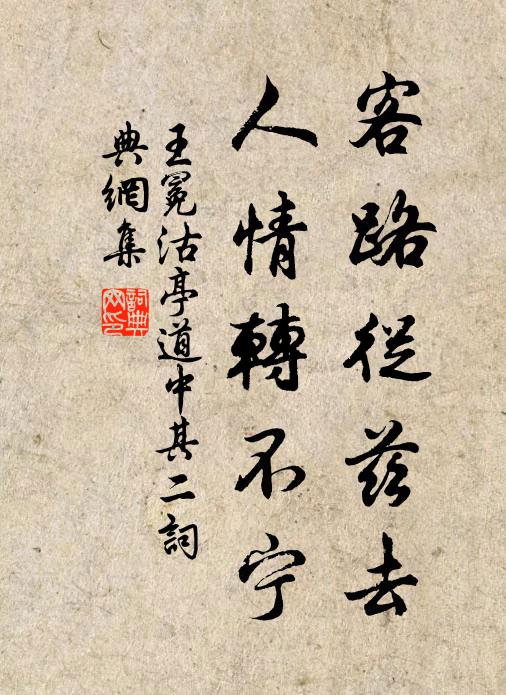 客路從茲去
人情轉不宁
王冕沽亭道中其二詞
典網集
詞典
网印